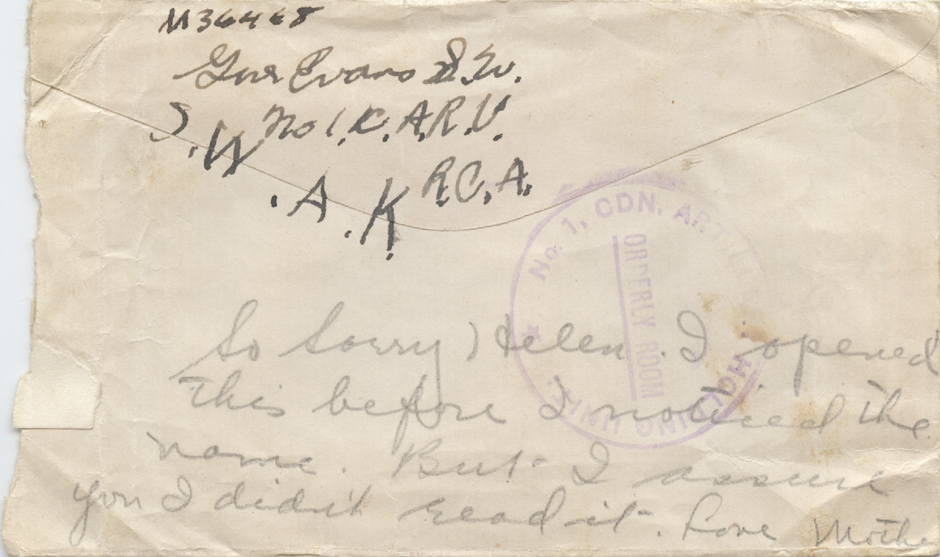 M36468
Gus Evans
No 1. C. A. R. U.
S.W.A.K.
R.C.A.
No. 1, CDN. ARTILLERY
HOLDING UNIT
ORDERLY ROOM
So Sorry Helen. I opened
this before I noticed the
name. But I assure
you I didn't read it. Love Mothe